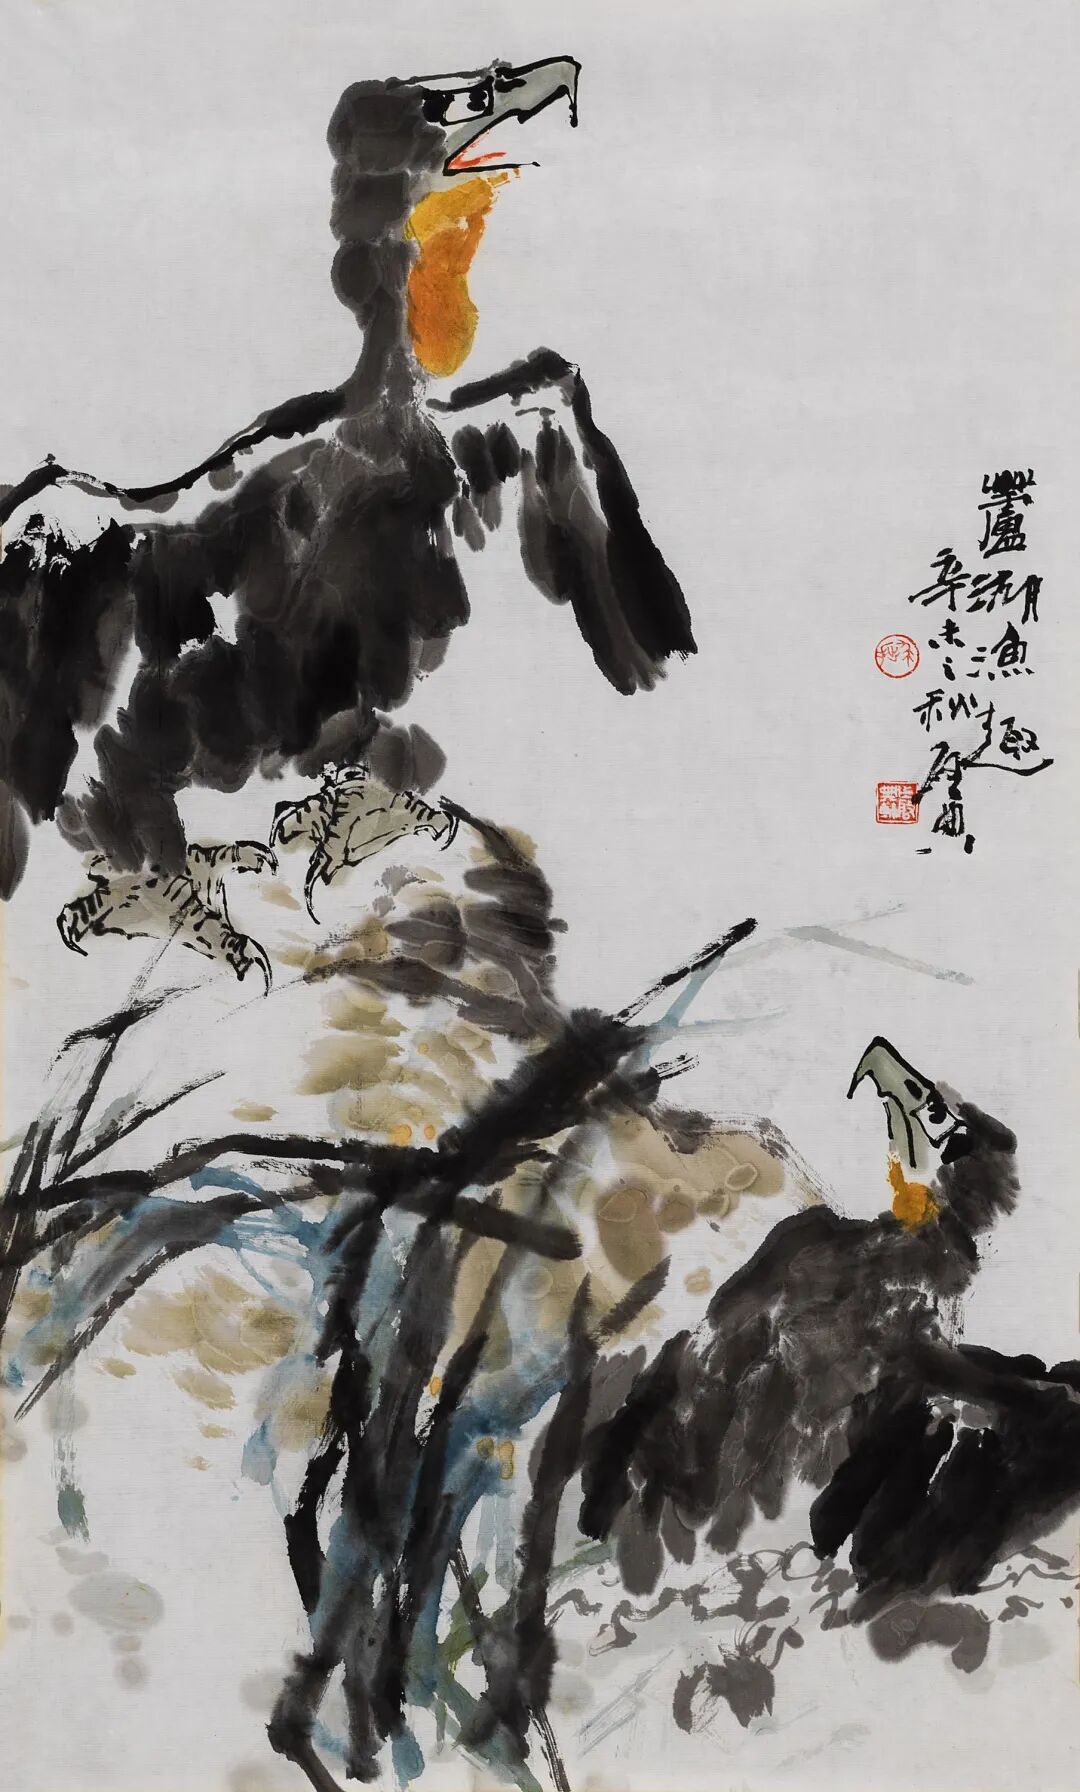 蘆湖漁趣
辛未之秋